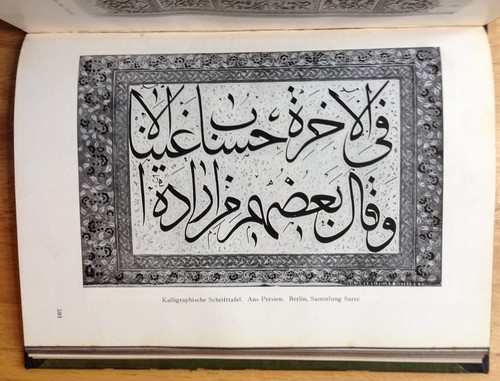 فى الآخرة حسنا غينالا
وقال بعضهم من اراده ا
Kalligraphische Schrifttafel. Aus Persien. Berlin, Sammlung Sarre
501